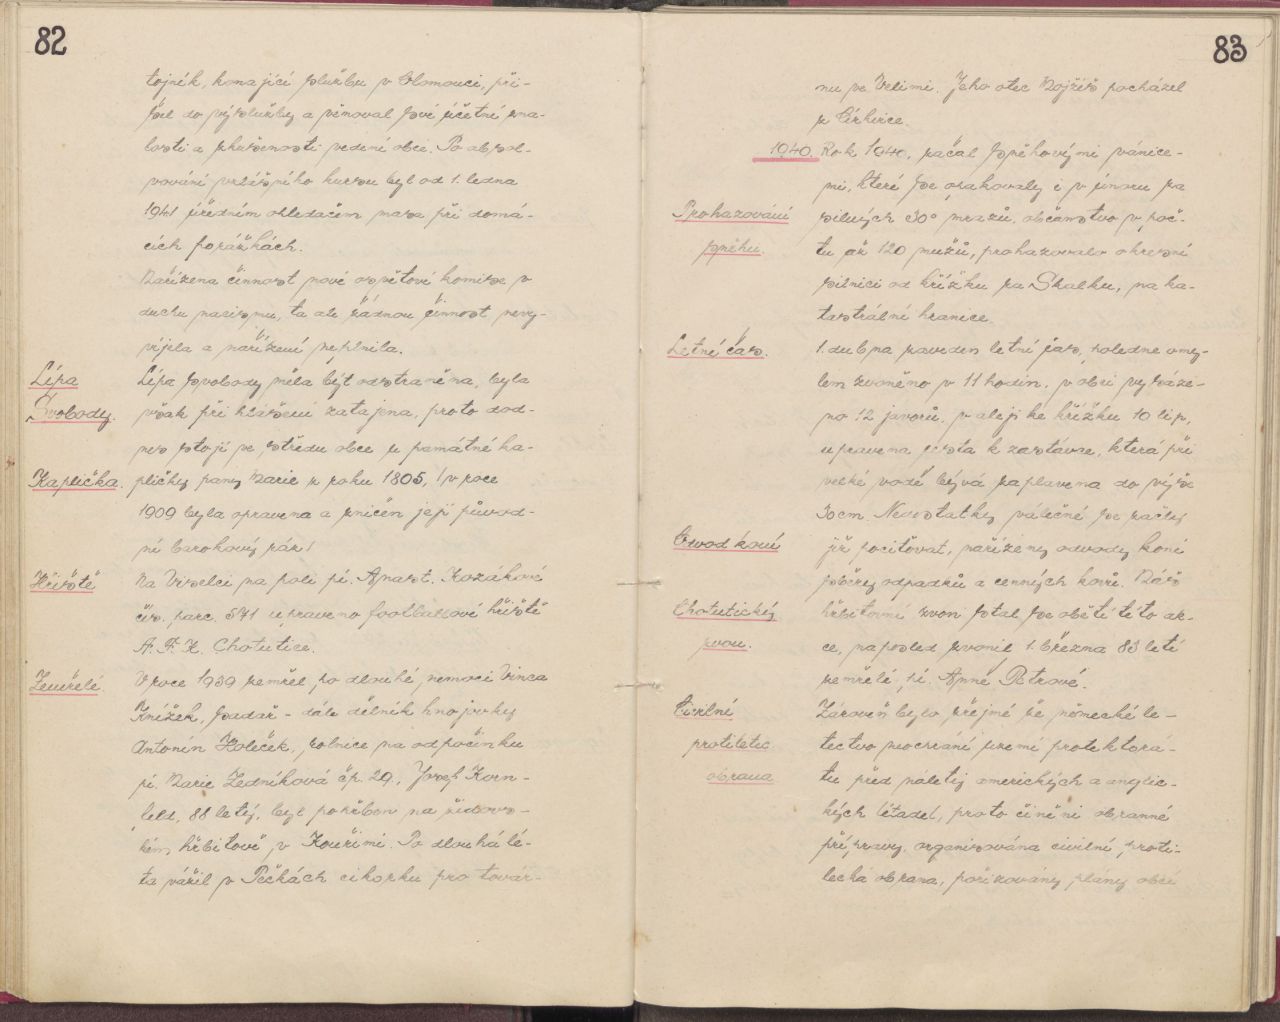 82
tojník, konající službu v Olomouci, při-
šel do výslužby a věnoval své účetní zna-
losti a zkušenosti vedení obce. Po absol-
vování zvláštního kursu byl od 1. ledna
1941 úředním ohledačem masa při domá-
cích porážkách.
Nařízena činnost nové osvětové komise v
duchu nacismu, ta ale žádnou činnost nevy-
víjela a nařízení neplnila.
Lípa
Svobody.
Lípa Svobody měla být odstraněna, byla
však při hlášení zatajena, proto dod-
nes stojí ve středu obce u památné ka-
Kaplička.
pličky panny Marie z roku 1805, /v roce
1909 byla opravena a zničen její původ-
ní barokový ráz/
Hřiště
Na Viselci na poli pí. Anast. Kozákové
čís. parc. 571 upraveno footballové hřiště
A. F. K. Chotutice.
Zemřelé.
V roce 1939 zemřel, po dlouhé nemoci Vinca
Knížek, sadař - dále dělník hnojivky
Antonín Holeček, rolnice na odpočinku
pí. Marie Zedníková čp. 29, Josef Korn-
feld, 88 letý, byl pohřben na židovs-
kém hřbitově v Kouřimi. Po dlouhá lé-
ta vářil v Pečkách cikorku pro továr-
83
nu ve Velimi. Jeho otec Mojžíš pocházel
z Cerhvice.
1940.
Rok 1940. začal sněhovými vánice-
mi, které se opakovaly i v únoru za
Prohazování
sněhu.
silných 30° mrazů. občanstvo v poč-
tu až 120 mužů, prohazovalo okresní
silnici od křížku za Skalku, na ka-
tastrální hranice.
Letní čas.
1. dubna zaveden letní čas, poledne omy-
lem zvoněno v 11 hodin. v obci vysáze-
no 12 javorů. v aleji ke křížku 10 lip,
upravena cesta k zastávce, která při
velké vodě bývá zaplavena do výše
30 cm. Nedostatky válečné se začly
Odvod koní
již pociťovat, nařízeny odvody koní
sběry odpadků a cenných kovů. Náš
Chotutický
zvon.
hřbitovní zvon stal se obětí této ak-
ce, naposled zvonil 1. března 83 leté
zemřelé, pí. Anně Petrové.
Civilní
protiletec.
obrana
Zároveň bylo zřejmé že německé le-
tectvo neochrání území protektorá-
tu před nálety amerických a anglic-
kých letadel, proto činěni obranné
přípravy. organisována civilní proti-
lecká obrana, pořizovány plány obcí